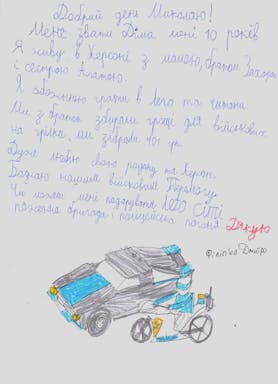 Добрий день Миколаю!
Мене звати Діма мені 10 років
Я живу в Херсоні з мамою, братом Захаром
і сестрою Златою.
Я обожнюю грати в лего та читати
Ми з братом збирали гроші для військових
на грілки, ми зібрали
Дуже люблю свою родину та Херсон.
Бажаю нашим військовим Перемогу
Чи можеш мені подарувати LEGO СІТІ
пожежна бригада і поліцейська погоня Дякую
Дмитро